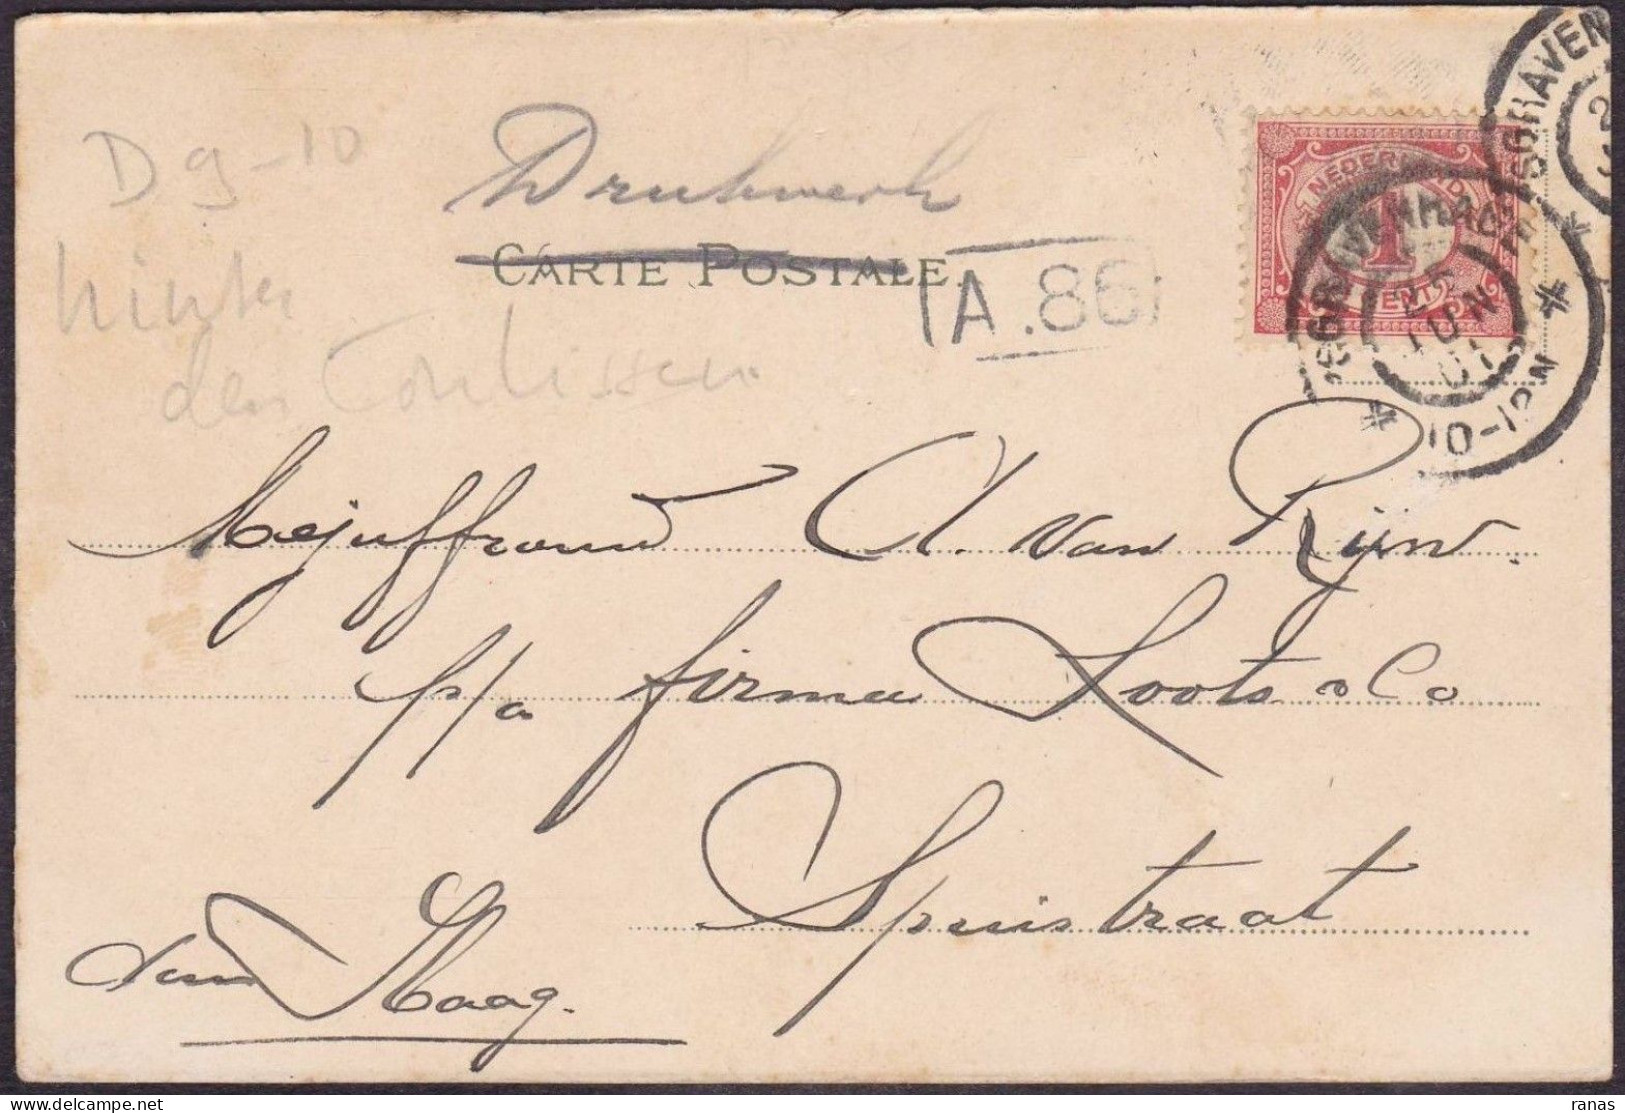 D 9-10
Drukwerk
CARTE POSTALE.
(A.86)
hinter
den Coulissen
NEDERLAND
1
CENT
'SGRAVENHAGE
25
JUN
01
10-12N
'SGRAVEN
Mejuffrouw A. van Rijn
p/a firma Loots & Co
Spuistraat
den Haag.
ranas